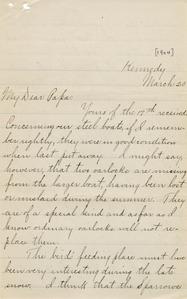 [1904]
Kennedy
March 20
My Dear Papa:
Yours of the 17th received
Concerning our steel boats, if I remem-
ber rightly, they were in good condition
when last put away. I might say
however, that two oarlocks are missing
from the larger boat, having been lost
or mislaid during the summer. They
are of a special kind and as far as I
know ordinary oarlocks will not re-
place them.
The birds' feeding place must have
been very interesting during the late
snow. I think that the sparrows